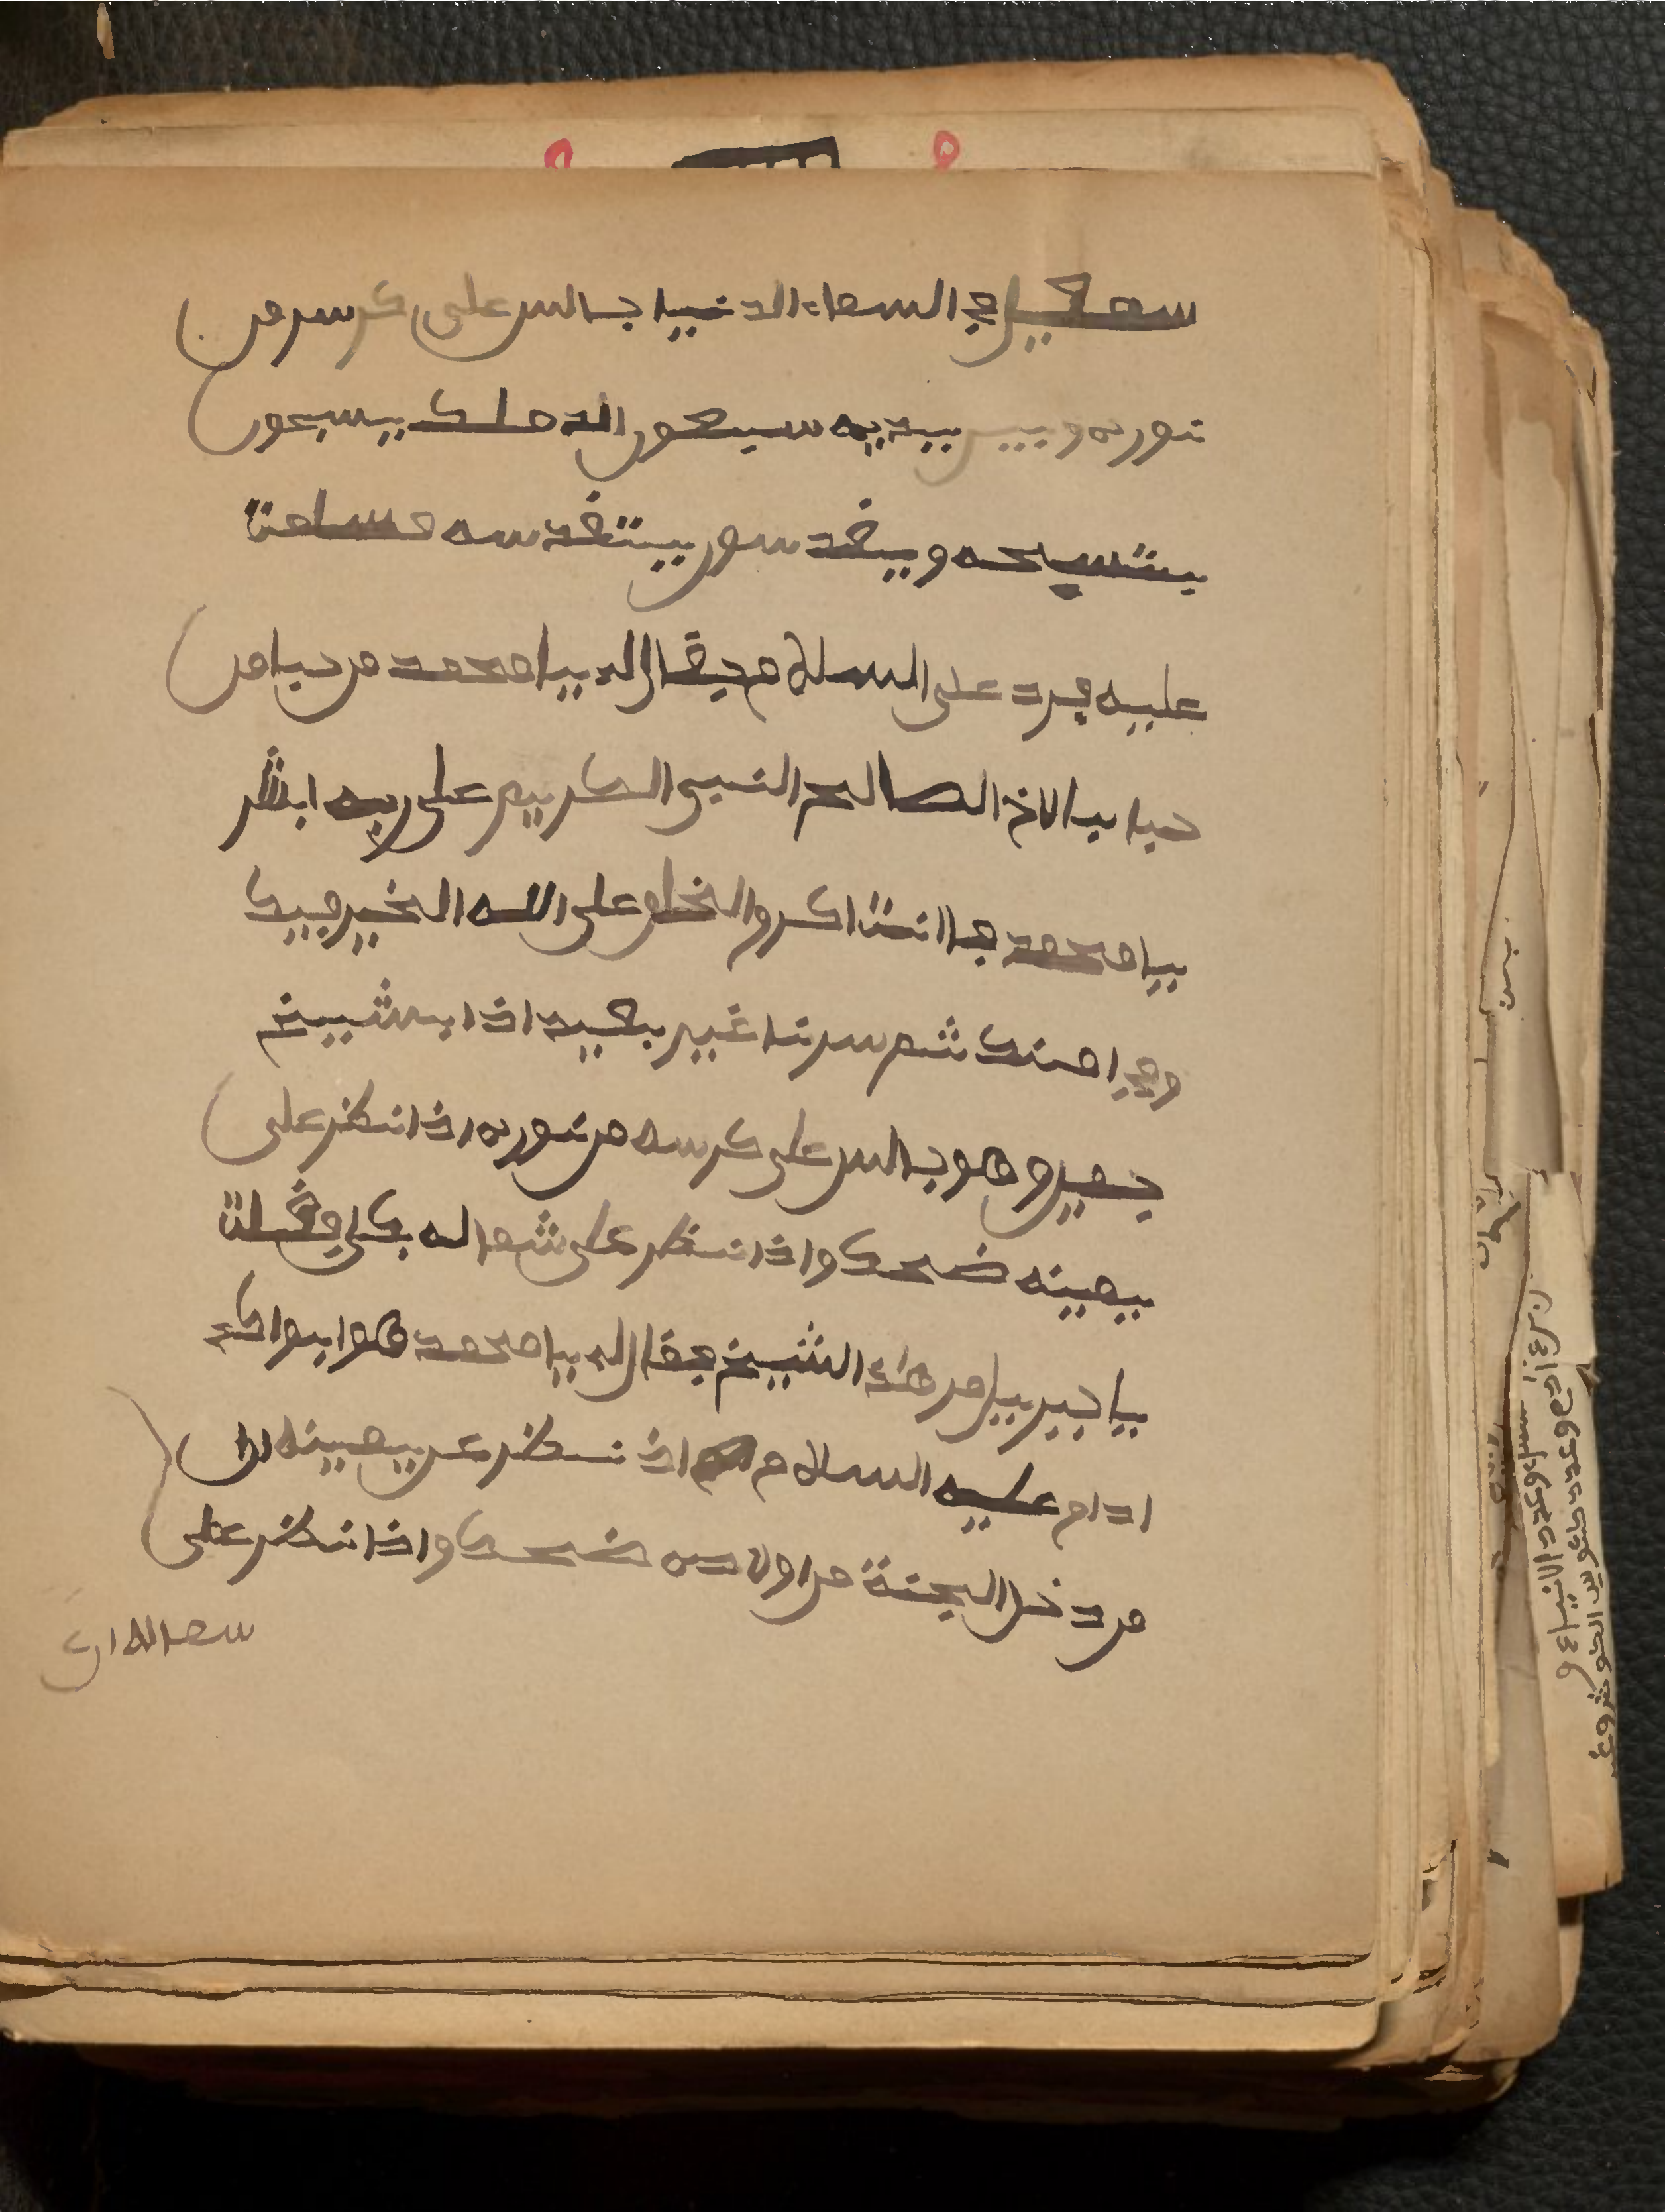 سمعيل في السماء الدنيا جالس على كرس من
نوره وبين يديه سبعون الد ملك يسبحون
بتسبيحه ويقد سون بتقدسه مسلمت
عليه فرد على السلام فيقال له يا محمد مر حبا من
حبا بالاخ الصالح النبي الكريم على ربه ابشر
يا محمد فاانت اكرو الخلق على الله الخير فيك
وفي امتك ثم سرنا غير بعيد اذا بشيخ
جميل وهو جالس على كرسه من نوره اذا نظر على
يمينه ضحك واذا نظر على شماله بكى وقلت
يا جبريل من هذ الشيخ فقال له يا محمد هو ابوك
ادام عليه السلام اذ نظر عن يمينه ان
من دخل الجنة من اولاده ضحك واذا نظر على
سماله ان